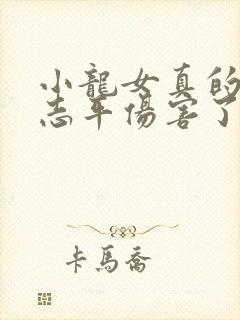 小龍女真的
志平傷害了
卡馬喬